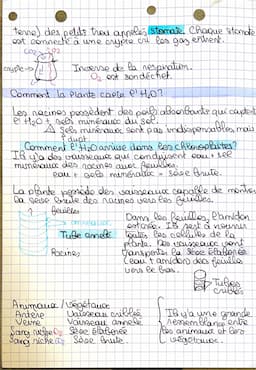 terne) des petits trous appelés stomate. Chaque stomate
est connecté à une crypte où les gaz entrent.
CO2 O2
crypte → Inverse de la respiration.
O2 est son déchet.
Comment la plante capte l'H2O?
Les racines possèdent des poils absorbants qui captent
l'H2O + sels minéraux du sol.
⚠ Sels minéraux sont pas indispensables, mais
Comment l'H2O arrive dans les chloroplastes?
Il y'a des vaisseaux qui conduisent eau + sel
minéraux des racines aux feuilles.
eau + sels minéraux = sève brute.
La plante possède des vaisseaux capable de monter
la sève brute des racines vers les feuilles.
? feuilles
Dans les feuilles, l'amidon
Tube annelé
est stocké. Il sert à nourrir
toutes les cellules de la
plante. Des vaisseaux vont
Racines
transporter la sève élaborée
(eau + amidon) des feuilles
vers le bas.
Tubes
criblés
Animaux / végétaux
Artère Vaisseau criblé
Veine Vaisseau annelé
Sang riche O2 Sève élaborée
Sang riche Sève brute.
Il y'a une grande
ressemblance entre
les animaux et les
végétaux.